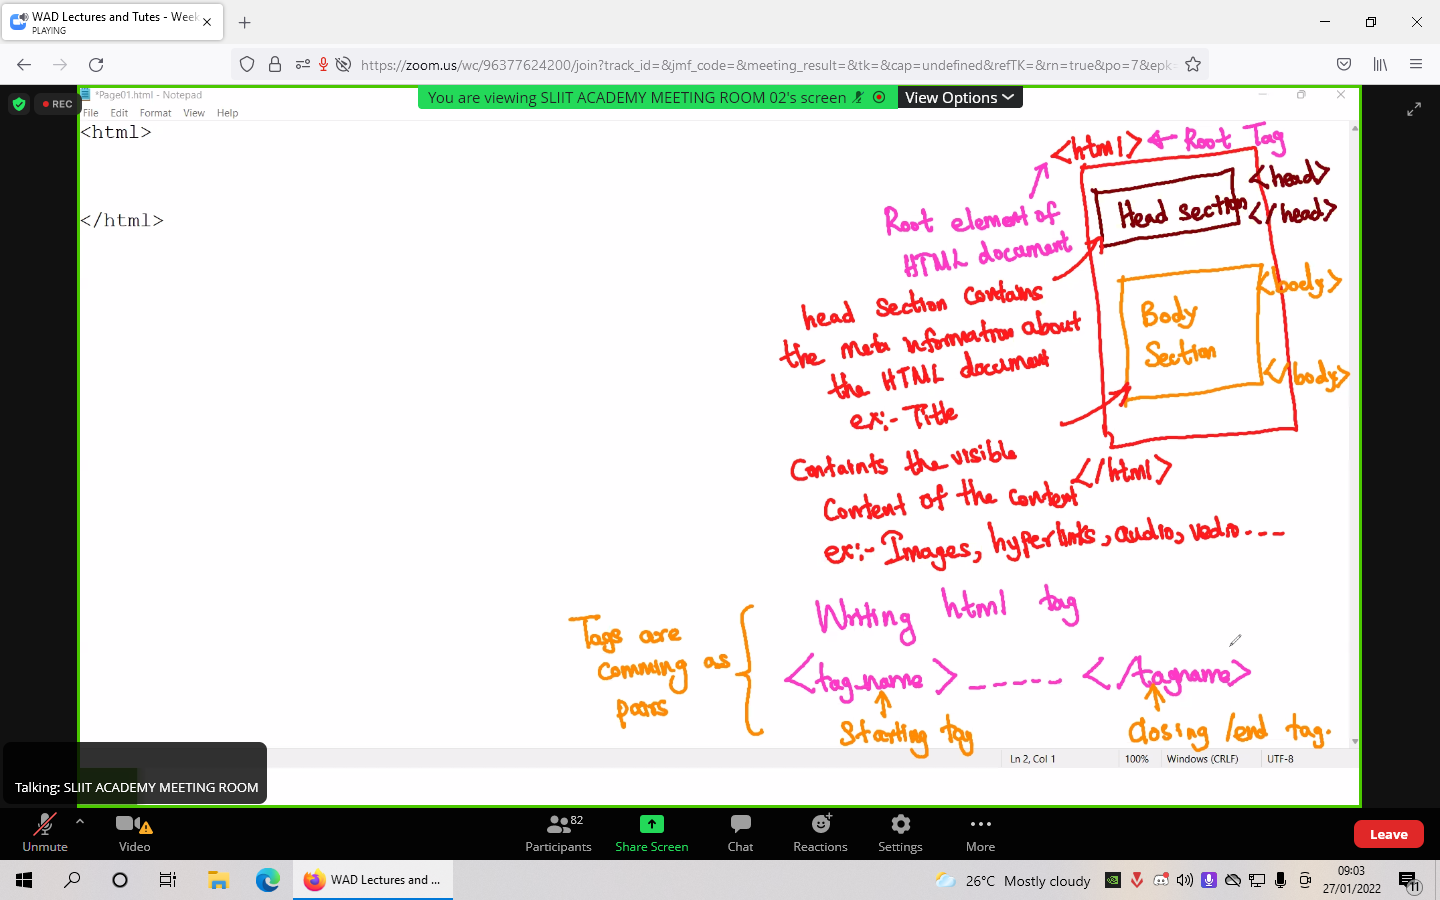 WAD Lectures and Tutes - Week
PLAYING
https://zoom.us/wc/96377624200/join?track_id=&jmf_code=&meeting_result=&tk=&cap=undefined&refTK=&rn=true&po=7&epk=
REC
*Page01.html - Notepad
You are viewing SLIIT ACADEMY MEETING ROOM 02's screen
View Options
File Edit Format View Help
<html>
</html>
<html> ← Root Tag
<head>
Head section
</head>
Root element of
HTML document
<body>
head section contains
the meta information about
the HTML document
ex:- Title
Body
Section
</body>
Containts the visible
Content of the context
</html>
ex:- Images, hyperlinks, audio, vedio ---
Writing html tag
Tags are
comming as
pairs
<tag_name> ----- </tagname>
Starting tag
Closing /end tag.
Ln 2, Col 1
100%
Windows (CRLF)
UTF-8
Talking: SLIIT ACADEMY MEETING ROOM
Unmute
Video
82
Participants
Share Screen
Chat
Reactions
Settings
More
Leave
WAD Lectures and ...
26°C Mostly cloudy
09:03
27/01/2022
11